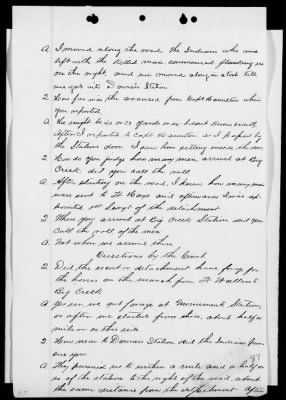 A. I moved along the road, the Indians who were
left with the killed man, commenced flanking us
on the right, and we moved along in a trot till
we got into Downers Station
Q. How far was the accused from Capt Hamilton when
you reported
A. He might be 20 or 30 yards or so, I dont know exactly
After I reported to Capt Hamilton as I passed by
the Station door I saw him sitting inside the door
Q. How do you judge how many men arrived at Big
Creek, did you call the roll
A. After starting on the road, I knew how many men
were sent to Ft Hays and afterwards I was ap-
pointed 1st Sergt of the detachment
Q. When you arrived at Big Creek Station did you
Call the roll of the men
A. Not when we arrived there
Questions by the Court
Q. Did the escort or detachment have forage for
the horses on the march from Ft Wallace to
Big Creek
A. Yes sir, we got forage at Monument Station,
or after we started from there, about half a
mile or on this side
Q. How near to Downers Station did the Indians pur-
sue you
A. They pursued us to within a mile and a half or
so of the station to the right of the road, about
the same distance from the detachment. After